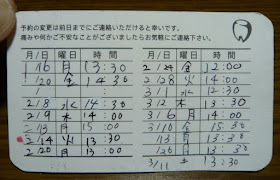 予約の変更は前日までにご連絡いただけると幸いです。
痛みや何かご不安なことがございましたらお気軽にご連絡下さい。
月/日 曜日 時間
1/16 月 13:30
1/20 金 14:30
/ :
2/8 水 14:30
2/9 木 14:00
2/13 月 15:00
2/14 火 13:30
2/20 月 13:00
月/日 曜日 時間
2/24 金 12:00
2/28 火 14:00
3/1 水 12:30
3/2 木 13:30
3/6 月 14:00
3/10 金 15:30
月 13:30
3/11 土 13:30